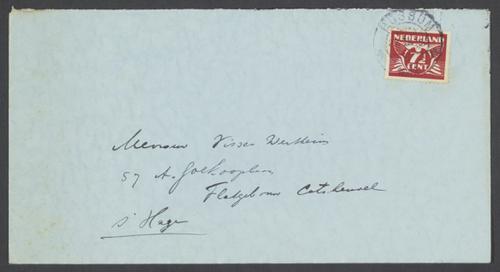 BUSSUM
NEDERLAND
7½
CENT
Mevrouw Visser Wertheim
57 A. Goekooplaan
Flatgebouw Catsheuvel
s' Hage